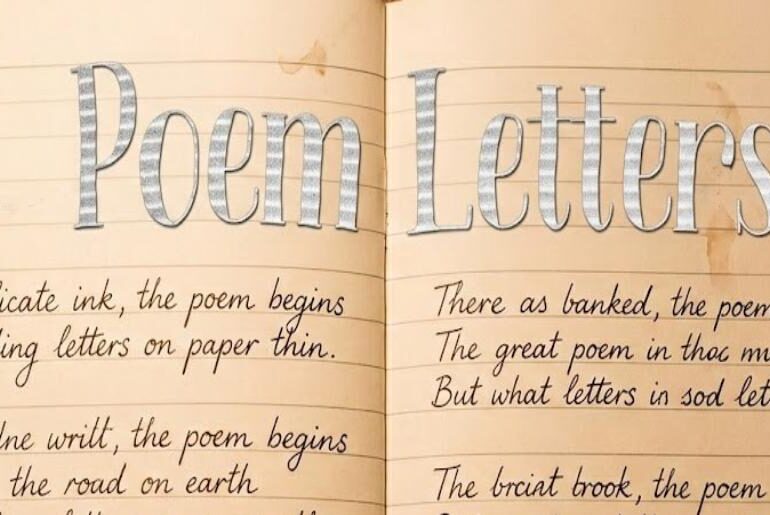 Poem Letters
icate ink, the poem begins
ing letters on paper thin.
lne writt, the poem begins
the road on earth
There as banked, the poem
The great poem in thac mu
But what letters in sod let
The brciat brook, the poem